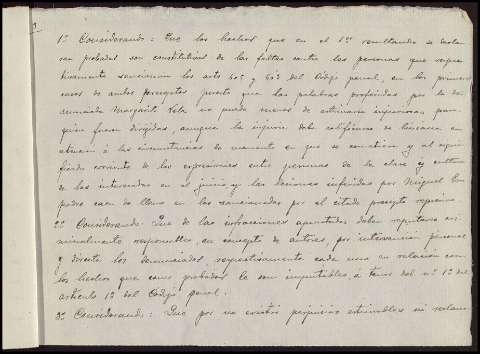 1º Considerando: Que los hechos que en el 1er resultando se decla
ran probados son constitutivos de las faltas contra las personas que respec
tivamente sancionan los arts y del Código penal, en los primeros
casos de ambos preceptos puesto que las palabras proferidas por la de
nunciada Margarita no puede menos de estimarse injuriosas para
quien fueron dirigidas, aunque la injuria debe calificarse de liviana en
atención á las circunstancias de momento en que se y al signi
ficado corriente de las expresiones entre personas de la clase y cultura
de las interesadas en el juicio y las lesiones inferidas por Miguel
caen de lleno en las sancionadas por el citado precepto
2º Considerando: Que de las infracciones apuntadas deben reputarse cri
minalmente responsables, en concepto de autores, por intervención personal
y directa los denunciados, respectivamente cada uno en relación con
los hechos que como probados le son imputables, á tenor del nº 1º del
artículo 1º del Código penal.
3º Considerando: Que por no existir perjuicios estimables ni reclama